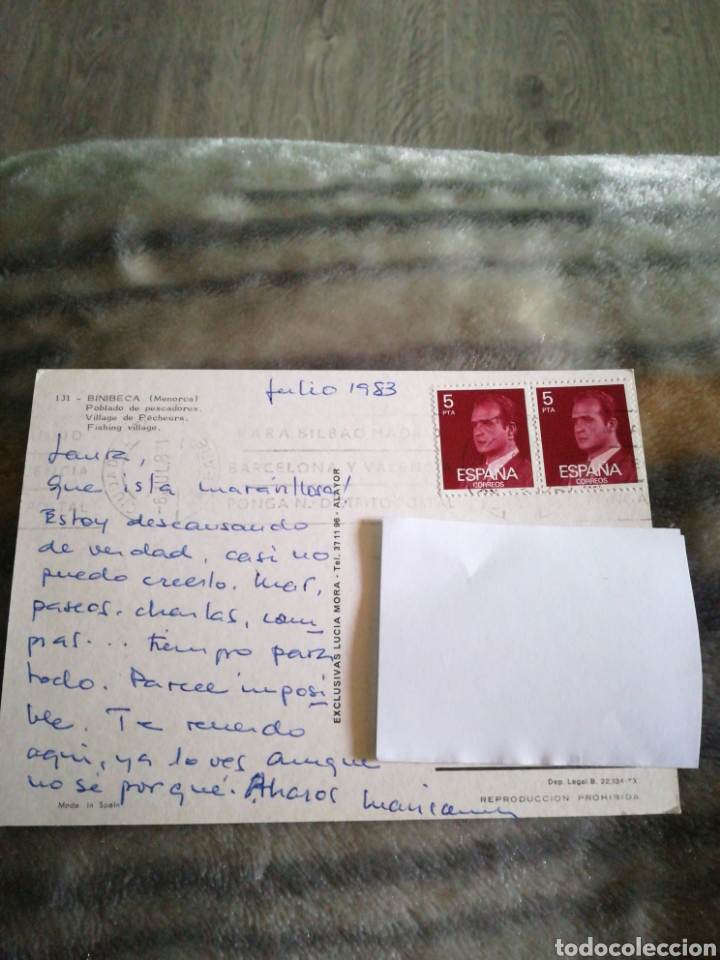 131 - BINIBECA (Menorca)
Poblado de pescadores.
Village de Pêcheurs.
Fishing village.
Julio 1983
5
PTA
ESPAÑA
CORREOS
5
PTA
ESPAÑA
CORREOS
PARA BILBAO MADRID
BARCELONA Y VALENCIA
PONGA N. DISTRITO POSTAL
Laura,
Que isla maravillosa!
Estoy descansando
de verdad, casi no
puedo creerlo. Mar,
paseos, charlas, com
pras... tiempo para
todo. Parece imposi
ble. Te recuerdo
aquí, ya lo ves aunque
no sé por qué.
EXCLUSIVAS LUCIA MORA - Tel. 37 11 96 - ALAYOR
Dep. Legal B. 22.134-XX
Made in Spain
REPRODUCCION PROHIBIDA
todocoleccion